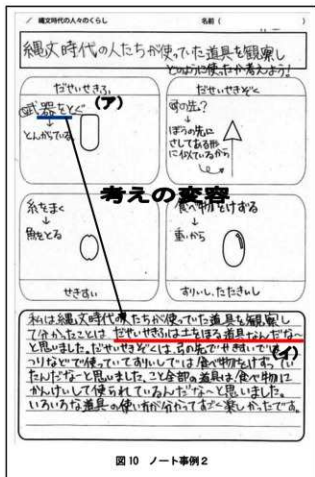 縄文時代の人々のくらし 名前（
縄文時代の人たちが使っていた道具を観察し
どのように使ったか考えよう！
だせいせきふ
だせいせきぞく
武器をとぐ
(ア)
↓
とんがっている
の先？
↓
ぼうの先に
さしてある形
に似ているから
考えの変容
糸をまく
↓
魚をとる
食べ物をけずる
↓
重いから
せきすい
すりいし、たたきいし
私は縄文時代の人たちが使っていた道具を観察し
て分かったことは、だせいせきふは土をほる道具なんだな〜
(イ)
と思いました。だせいせきぞくは、弓の先でせきすいでは
つりなどで使っていてすりいしでは食べ物をけずってい
たんだな〜と思いました。こと全部の道具は、食べ物に
かんけいして使られているんだな〜と思いました。
いろいろな道具の使い方が分かってすごく楽しかったです。
図10 ノート事例2